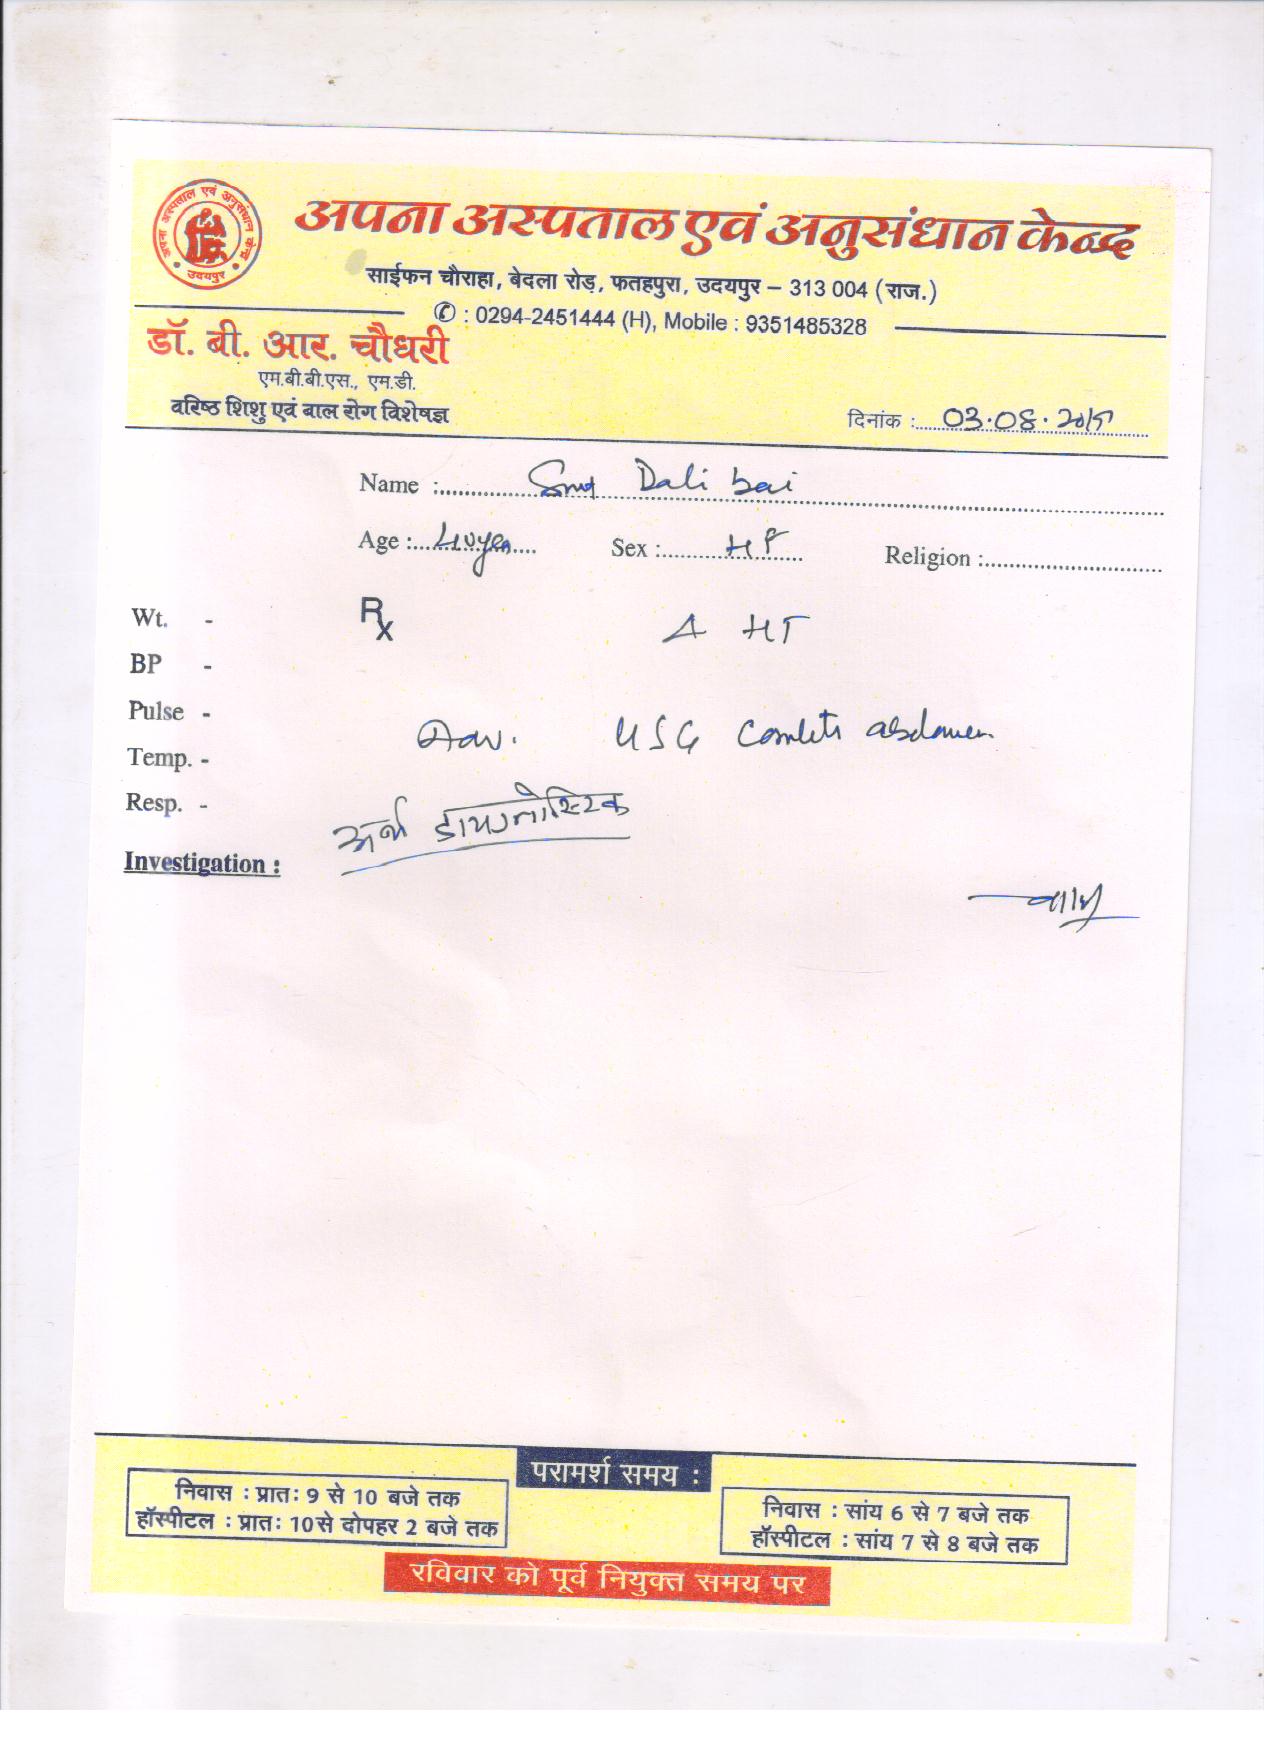 अपना अस्पताल एवं अनुसंधान केन्द्र
अपना अस्पताल एवं अनुसंधान केन्द्र
उदयपुर
साईफन चौराहा, बेदला रोड़, फतहपुरा, उदयपुर – 313 004 (राज.)
✆ : 0294-2451444 (H), Mobile : 9351485328
डॉ. बी. आर. चौधरी
एम.बी.बी.एस., एम.डी.
वरिष्ठ शिशु एवं बाल रोग विशेषज्ञ
दिनांक : 03.08.2015
Name : Smt Dali bai
Age : 40yrs Sex : HF Religion :
Wt. - Rx Δ HT
BP -
Pulse -
Adv. USG Comlete abdomen
Temp. -
Resp. - अर्थ डायग्नोस्टिक
Investigation :
परामर्श समय :
निवास : प्रातः 9 से 10 बजे तक
हॉस्पीटल : प्रातः 10 से दोपहर 2 बजे तक
निवास : सांय 6 से 7 बजे तक
हॉस्पीटल : सांय 7 से 8 बजे तक
रविवार को पूर्व नियुक्त समय पर